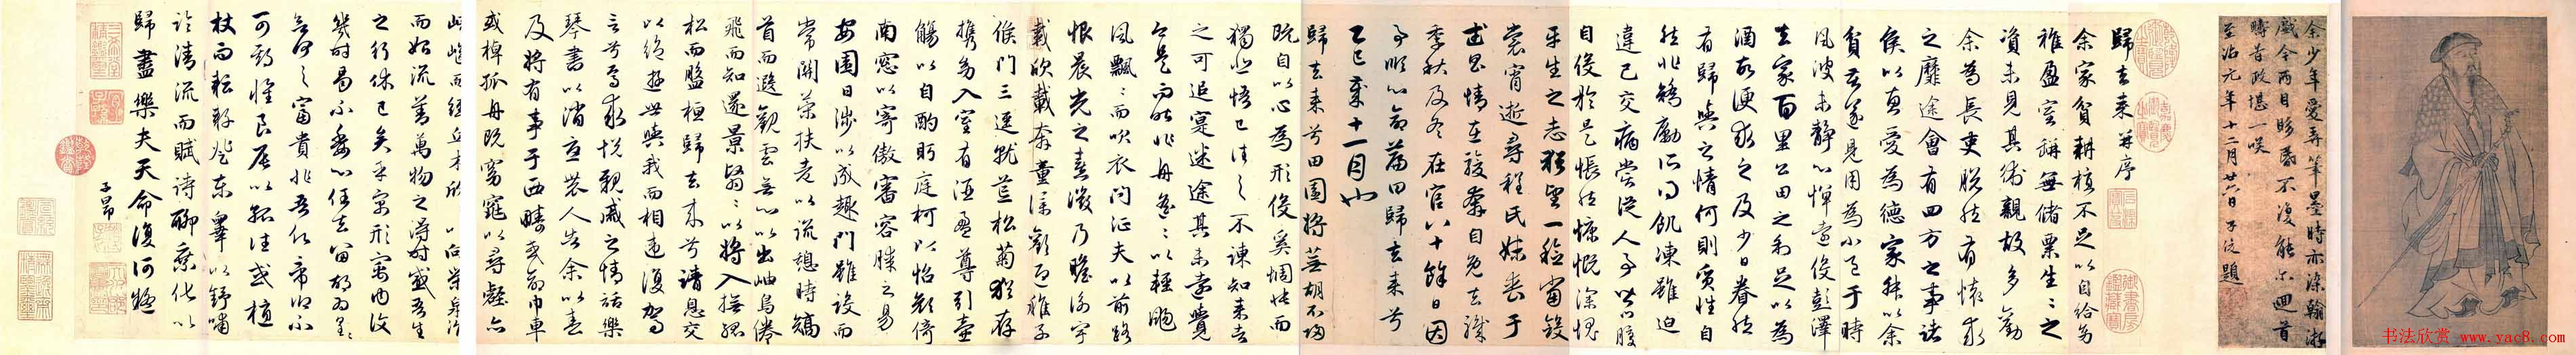 余少年愛弄筆墨時亦染翰游
戲今兩目眵昏不復能爾迴首
疇昔政堪一咲
至治元年十二月廿六日 子俊題
歸去来并序
余家貧耕植不足以自給幼
稚盈室缾無儲粟生〻之
資未見其術親故多勸
余為長吏脱然有懷求
之靡途會有四方之事諸
侯以惠愛為德家叔以余
貧苦遂見用為小邑于時
風波未静心憚遠役彭澤
去家百里公田之利足以為
酒故便求之及少日眷然
有歸與之情何則質性自
然非矯勵所得飢凍雖迫
違己交病嘗從人事皆口腹
自役於是悵然慷慨深愧
平生之志猶望一稔當斂
裳宵逝尋程氏妹喪于
武昌情在駿奔自免去職
季秋及冬在官八十餘日因
事順心命篇曰歸去来兮
乙巳歲十一月也
歸去来兮田園将蕪胡不歸
既自以心為形役奚惆悵而
獨悲悟已往之不諫知来者
之可追寔迷途其未遠覺
今是而昨非舟遥〻以輕颺
風飄〻而吹衣問征夫以前路
恨晨光之熹微乃瞻衡宇
載欣載奔童僕歡迎稚子
候門三逕就荒松菊猶存
携幼入室有酒盈尊引壺
觴以自酌眄庭柯以怡顔倚
南窓以寄傲審容膝之易
安園日涉以成趣門雖設而
常關策扶老以流憩時矯
首而遐觀雲無心以出岫鳥倦
飛而知還景翳〻以将入撫孤
松而盤桓歸去来兮請息交
以絶遊世與我而相違復駕
言兮焉求悦親戚之情話樂
琴書以消憂農人告余以春
及将有事于西疇或命巾車
或棹孤舟既窈窕以尋壑亦
崎嶇而經丘木欣以向榮泉涓
而始流善萬物之得時感吾生
之行休已矣乎寓形寓内復
幾時曷不委心任去留胡為遑〻
兮何之富貴非吾願帝鄉不
可期懷良辰以孤往或植
杖而耘耔登東皋以舒嘯
臨清流而賦詩聊乗化以
歸盡樂夫天命復何疑
子昂
书法欣赏 www.yac8.com